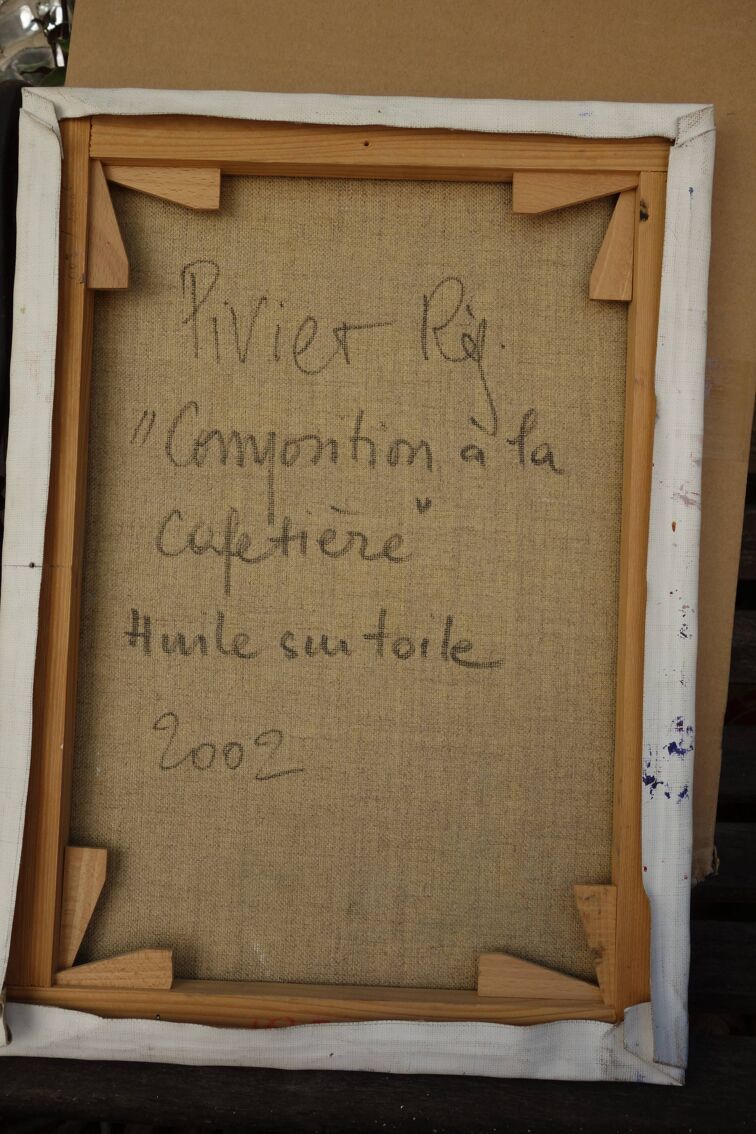 Pivier Rég.
"Composition à la
Cafetière"
Huile sur toile
2002